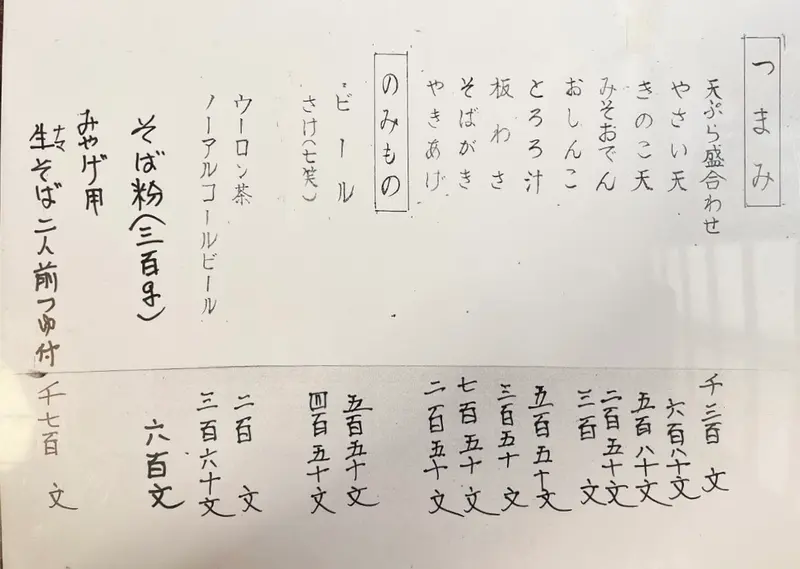 つまみ
天ぷら盛合わせ 千三百文
やさい天 六百八十文
きのこ天 五百八十文
みそおでん 二百五十文
おしんこ 三百文
とろろ汁 五百五十文
板わさ 三百五十文
そばがき 七百五十文
やきあげ 二百五十文
のみもの
ビール 五百五十文
さけ(七笑) 四百五十文
ウーロン茶 二百文
ノーアルコールビール 三百六十文
そば粉(三百g) 六百文
みやげ用
ナマ
生そば二人前つゆ付 千七百文